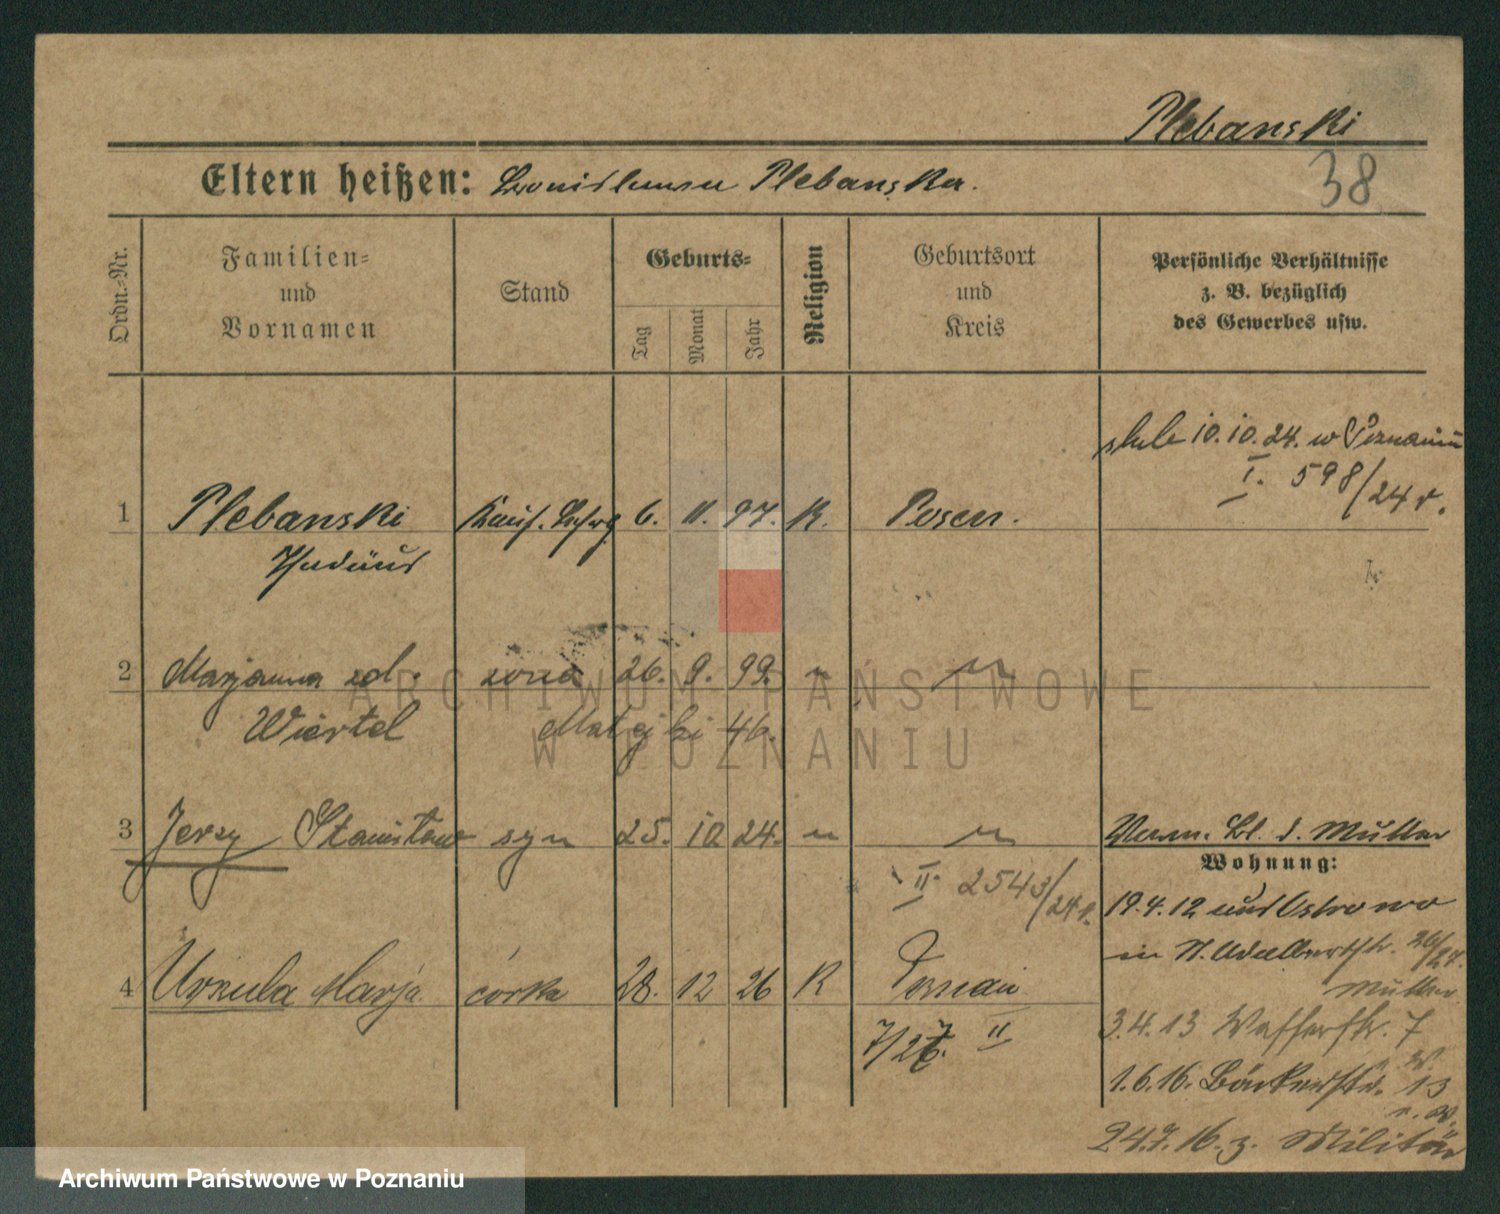 Plebanski
38
Eltern heißen: Plebanska.
Ordn.=Nr.
Familien=
und
Vornamen
Stand
Geburts=
Tag
Monat
Jahr
Religion
Geburtsort
und
Kreis
Persönliche Verhältnisse
z. B. bezüglich
des Gewerbes usw.
10.10.24. w Poznaniu
I. 598/24 r.
1 Plebanski Kauf. 6. 11. 97. K. Posen.
2 Marjanna zd. żona 26. 9. 99. " "
Wiertel Matejki 46.
3 Jerzy Stanisław syn 25. 10 24. " "
Verm. Bl. d. Mutter
Wohnung:
II. 2543/24 r.
19.4.12 Ostrowo
in St. Adalbertstr. 26/27.
Mutter
4 Urszula Marja córka 28. 12 26 K Poznań
7/27. II
3.4.13 Wasserstr. 7
1.6.16. Bäckerstr. 13
24.7.16. z. Militär
ARCHIWUM PAŃSTWOWE
W POZNANIU
Archiwum Państwowe w Poznaniu